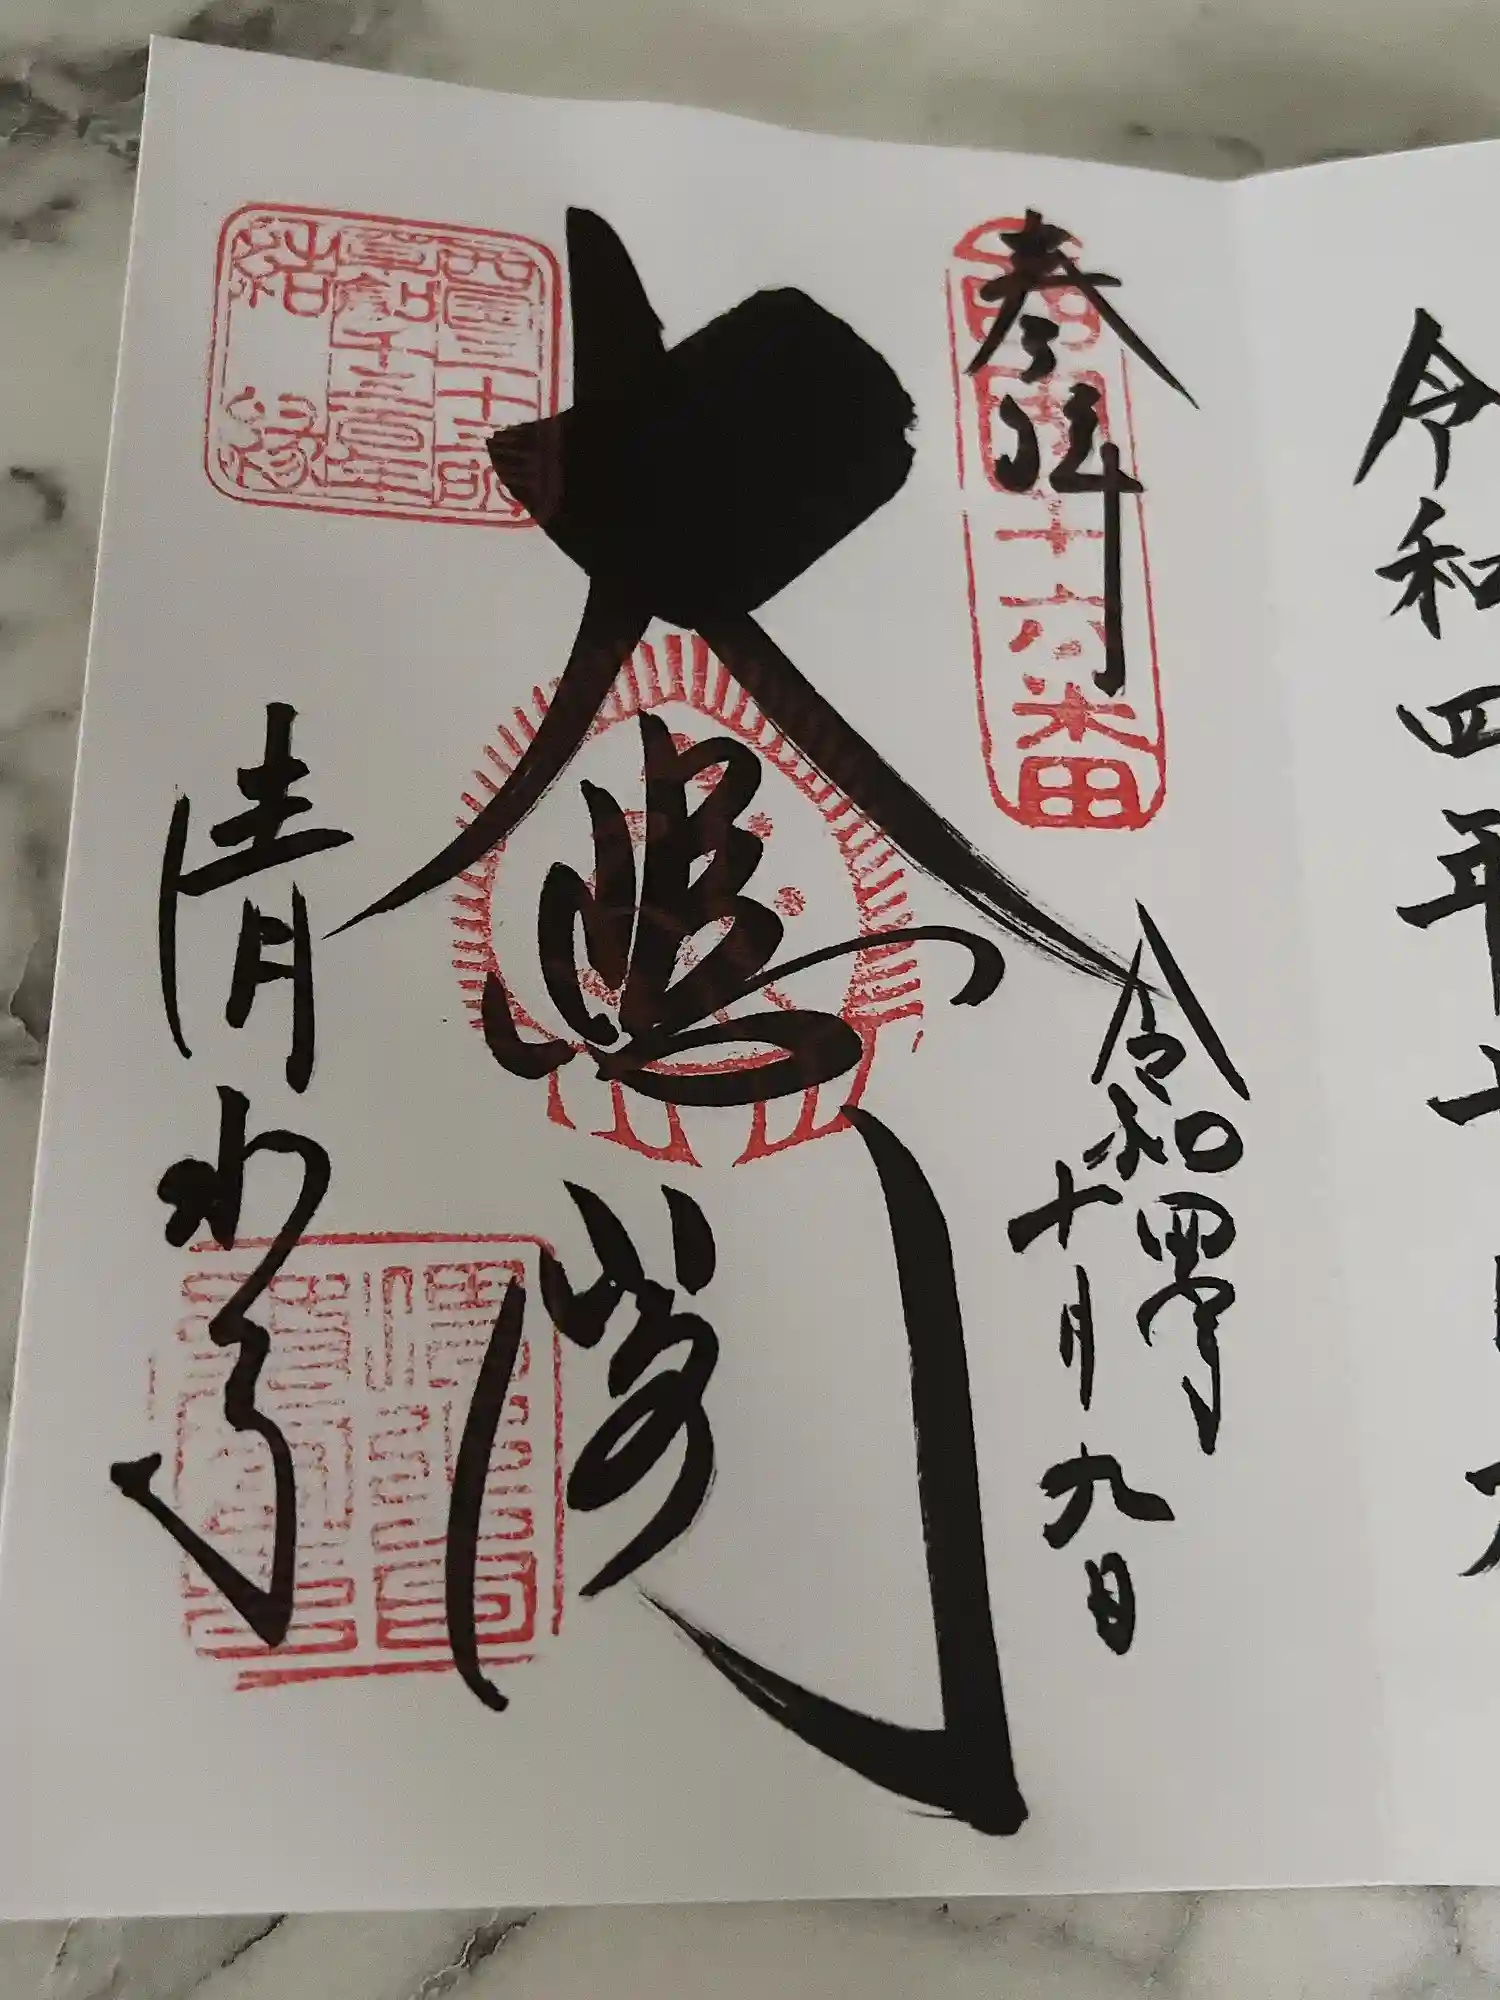 令和四年十
奉拝
西国十六番
令和四年
十月九日
大悲閣
清水寺
西国三十三所
草創千三百年
結縁